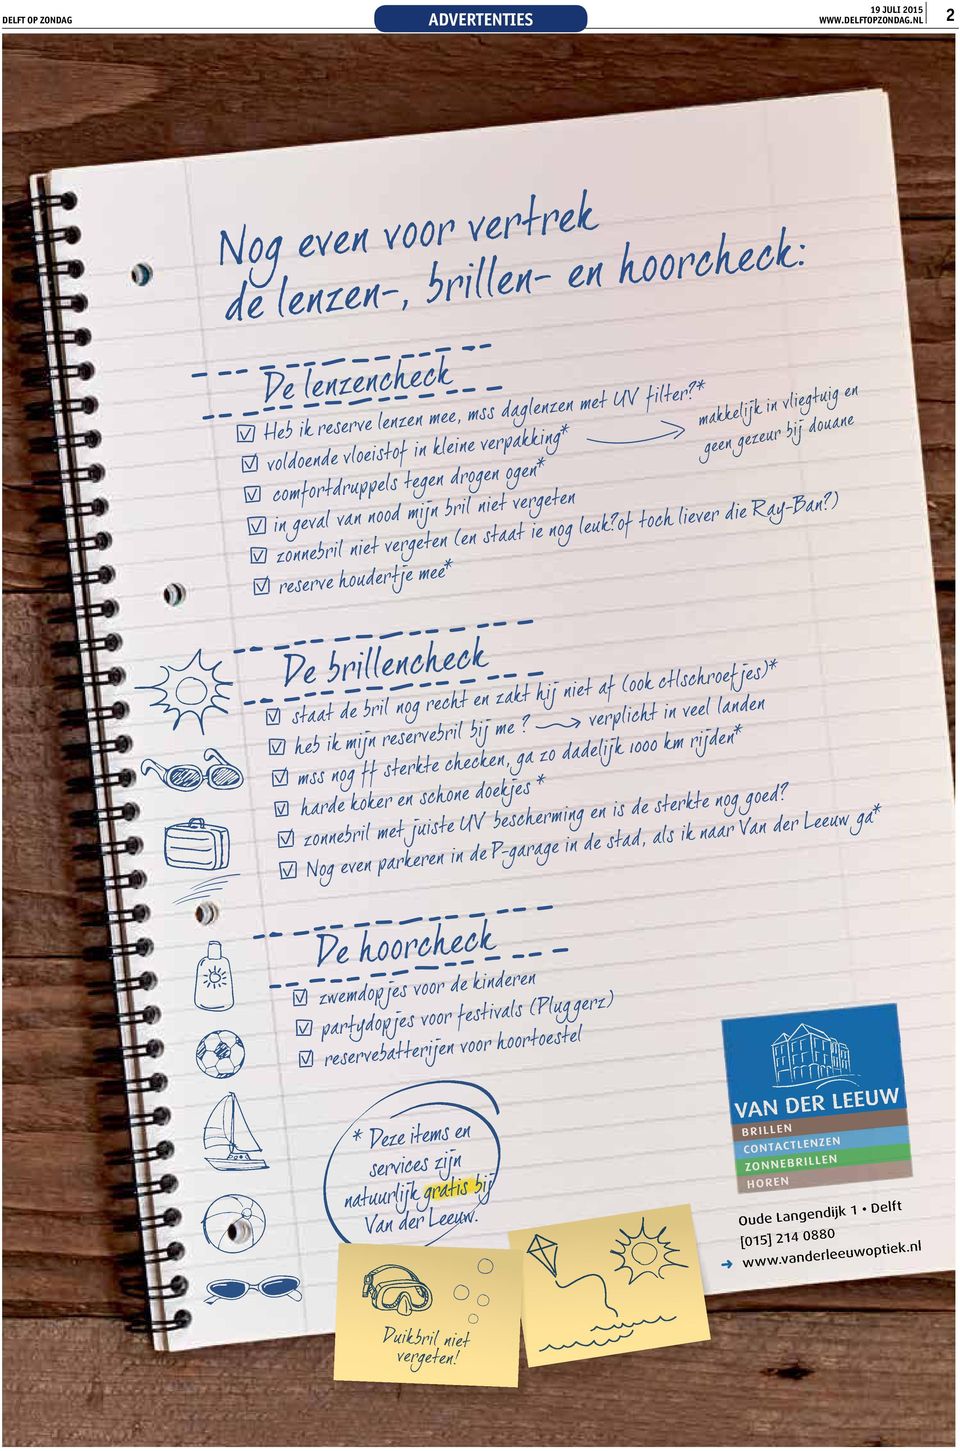 DELFT OP ZONDAG
ADVERTENTIES
19 JULI 2015
WWW.DELFTOPZONDAG.NL
2
Nog even voor vertrek
de lenzen-, brillen- en hoorcheck:
De lenzencheck
Heb ik reserve lenzen mee, mss daglenzen met UV filter?*
voldoende vloeistof in kleine verpakking*
makkelijk in vliegtuig en
geen gezeur bij douane
comfortdruppels tegen drogen ogen*
in geval van nood mijn bril niet vergeten
zonnebril niet vergeten (en staat ie nog leuk?of toch liever die Ray-Ban?)
reserve houdertje mee*
De brillencheck
staat de bril nog recht en zakt hij niet af (ook ctlschroefjes)*
heb ik mijn reservebril bij me ? verplicht in veel landen
mss nog ff sterkte checken, ga zo dadelijk 1000 km rijden*
harde koker en schone doekjes *
zonnebril met juiste UV bescherming en is de sterkte nog goed?
Nog even parkeren in de P-garage in de stad, als ik naar Van der Leeuw ga*
De hoorcheck
zwemdopjes voor de kinderen
partydopjes voor festivals (Pluggerz)
reservebatterijen voor hoortoestel
* Deze items en
services zijn
natuurlijk gratis bij
Van der Leeuw.
Duikbril niet
vergeten!
VAN DER LEEUW
BRILLEN
CONTACTLENZEN
ZONNEBRILLEN
HOREN
Oude Langendijk 1 • Delft
[015] 214 0880
www.vanderleeuwoptiek.nl